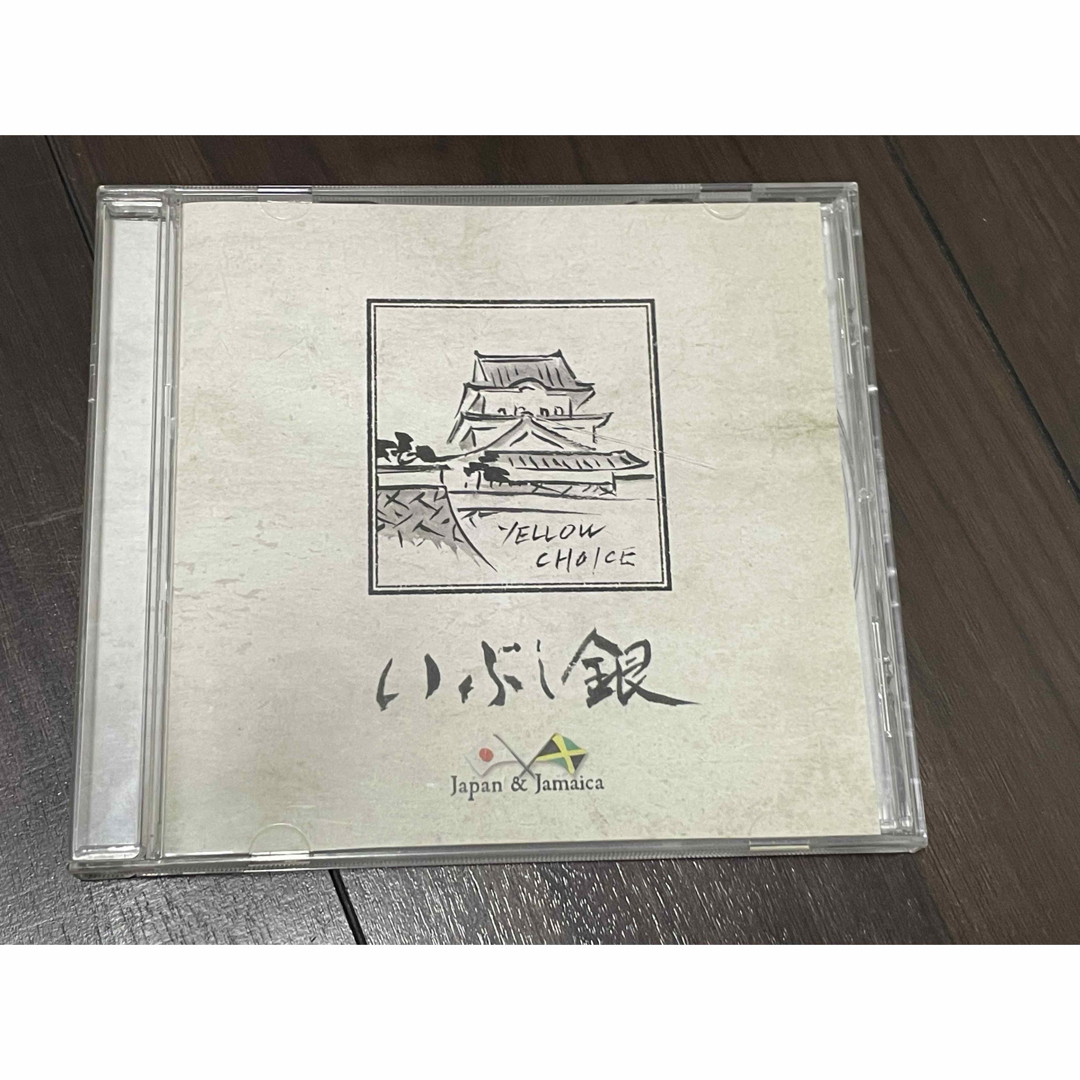 YELLOW
CHOICE
いぶし銀
Japan & Jamaica